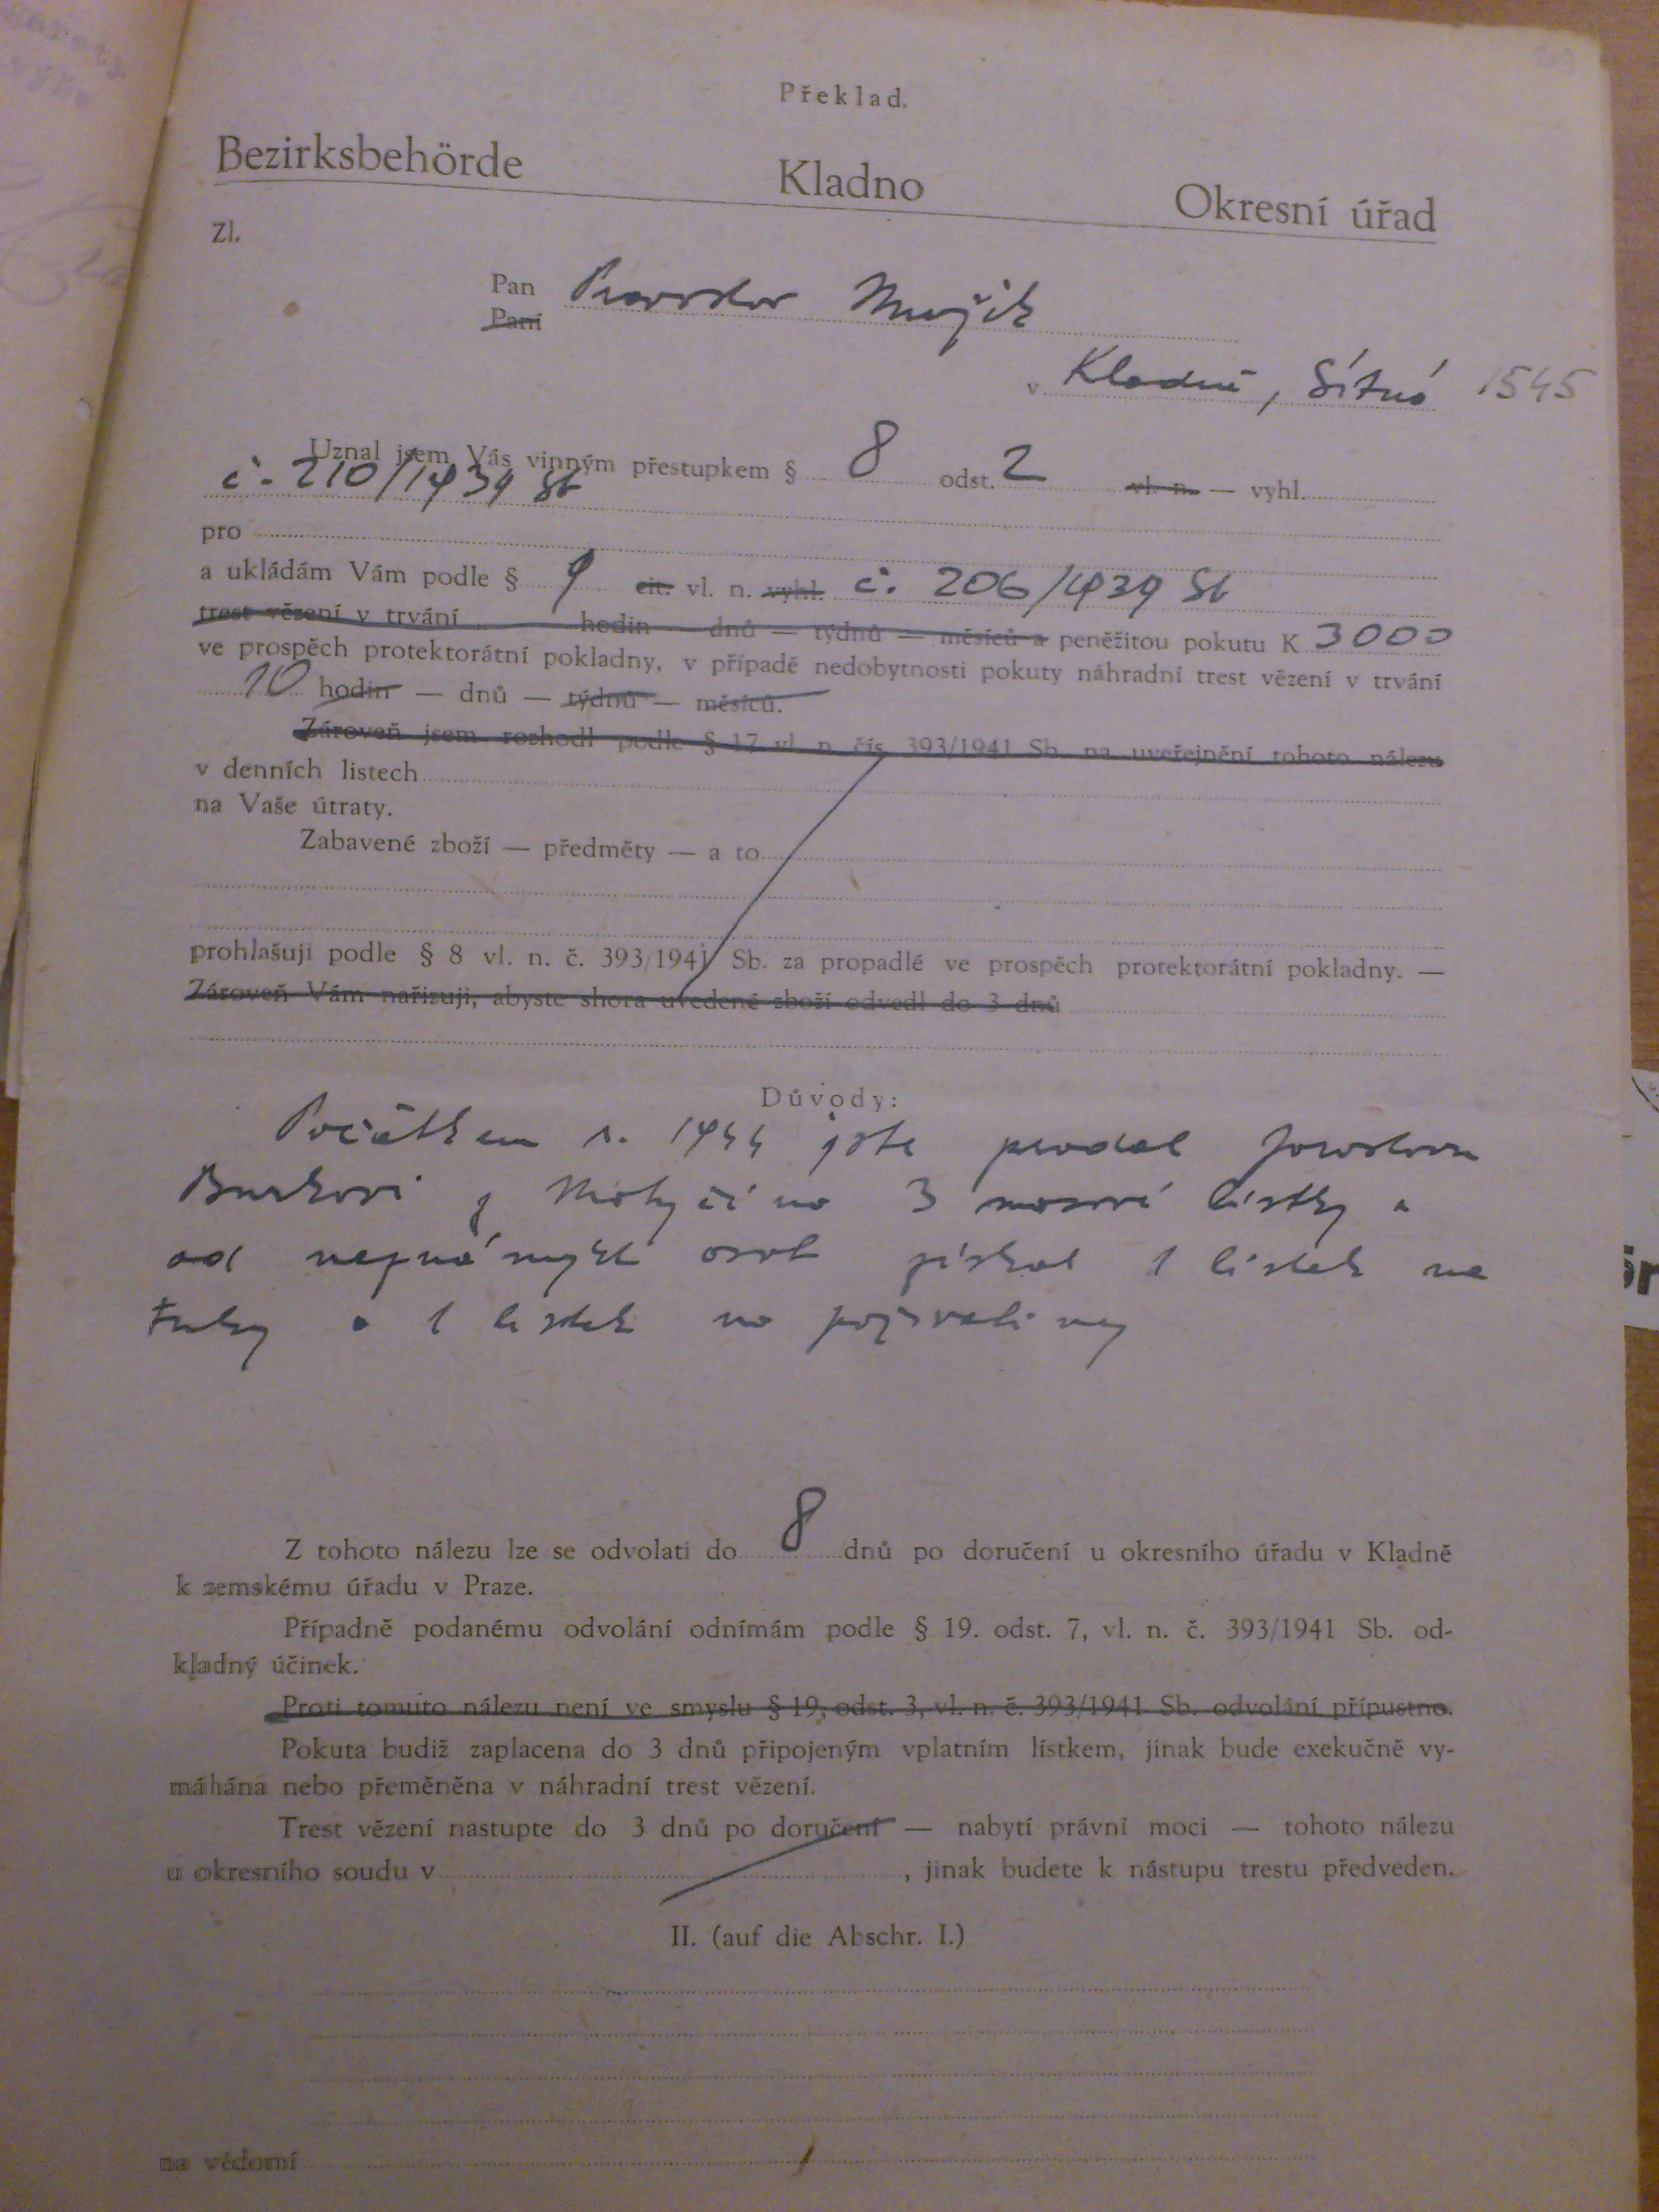 Překlad.
Bezirksbehörde Kladno Okresní úřad
Zl.
Pan
Paní
v Kladně, Sítná 1545
Uznal jsem Vás vinným přestupkem § 8 odst. 2 vl. n. — vyhl.
č. 210/1939 Sb
pro
a ukládám Vám podle § 9 cit. vl. n. vyhl. č. 206/1939 Sb
trest vězení v trvání hodin — dnů — týdnů — měsíců a peněžitou pokutu K 3000
ve prospěch protektorátní pokladny, v případě nedobytnosti pokuty náhradní trest vězení v trvání
10 hodin — dnů — týdnů — měsíců.
Zároveň jsem rozhodl podle § 17 vl. n. čís. 393/1941 Sb. na uveřejnění tohoto nálezu
v denních listech
na Vaše útraty.
Zabavené zboží — předměty — a to
prohlašuji podle § 8 vl. n. č. 393/1941 Sb. za propadlé ve prospěch protektorátní pokladny. —
Zároveň Vám nařizuji, abyste shora uvedené zboží odvedl do 3 dnů
Důvody:
Počátkem r. 1944 jste prodal Jaroslavu
Burkovi z Motyčína 3 masové lístky a
od neznámých osob získal 1 lístek na
tuky a 1 lístek na poživatiny
Z tohoto nálezu lze se odvolati do 8 dnů po doručení u okresního úřadu v Kladně
k zemskému úřadu v Praze.
Případně podanému odvolání odnímám podle § 19. odst. 7, vl. n. č. 393/1941 Sb. od-
kladný účinek.
Proti tomuto nálezu není ve smyslu § 19, odst. 3, vl. n. č. 393/1941 Sb. odvolání přípustno.
Pokuta budiž zaplacena do 3 dnů připojeným vplatním lístkem, jinak bude exekučně vy-
máhána nebo přeměněna v náhradní trest vězení.
Trest vězení nastupte do 3 dnů po doručení — nabytí právní moci — tohoto nálezu
u okresního soudu v , jinak budete k nástupu trestu předveden.
II. (auf die Abschr. I.)
na vědomí